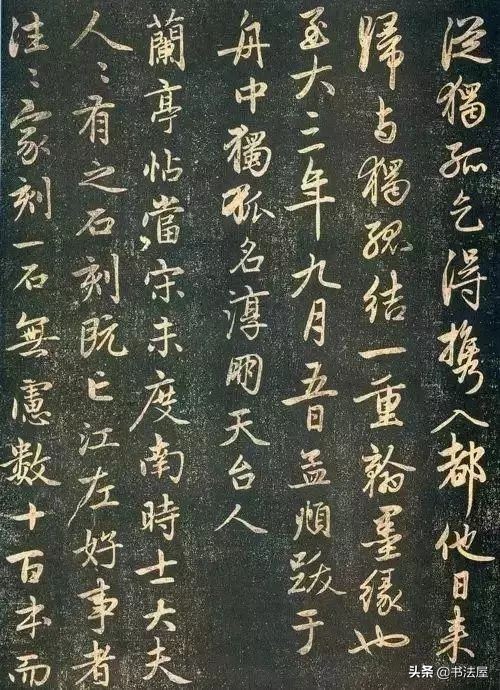 從獨孤乞得攜入都他日来
歸与獨孤結一重翰墨緣也
至大三年九月五日孟頫跋于
舟中獨孤名淳朋天台人
蘭亭帖當宋未度南時士大夫
人〻有之石刻既亡江左好事者
往〻家刻一石無慮數十百本而
头条 @书法屋